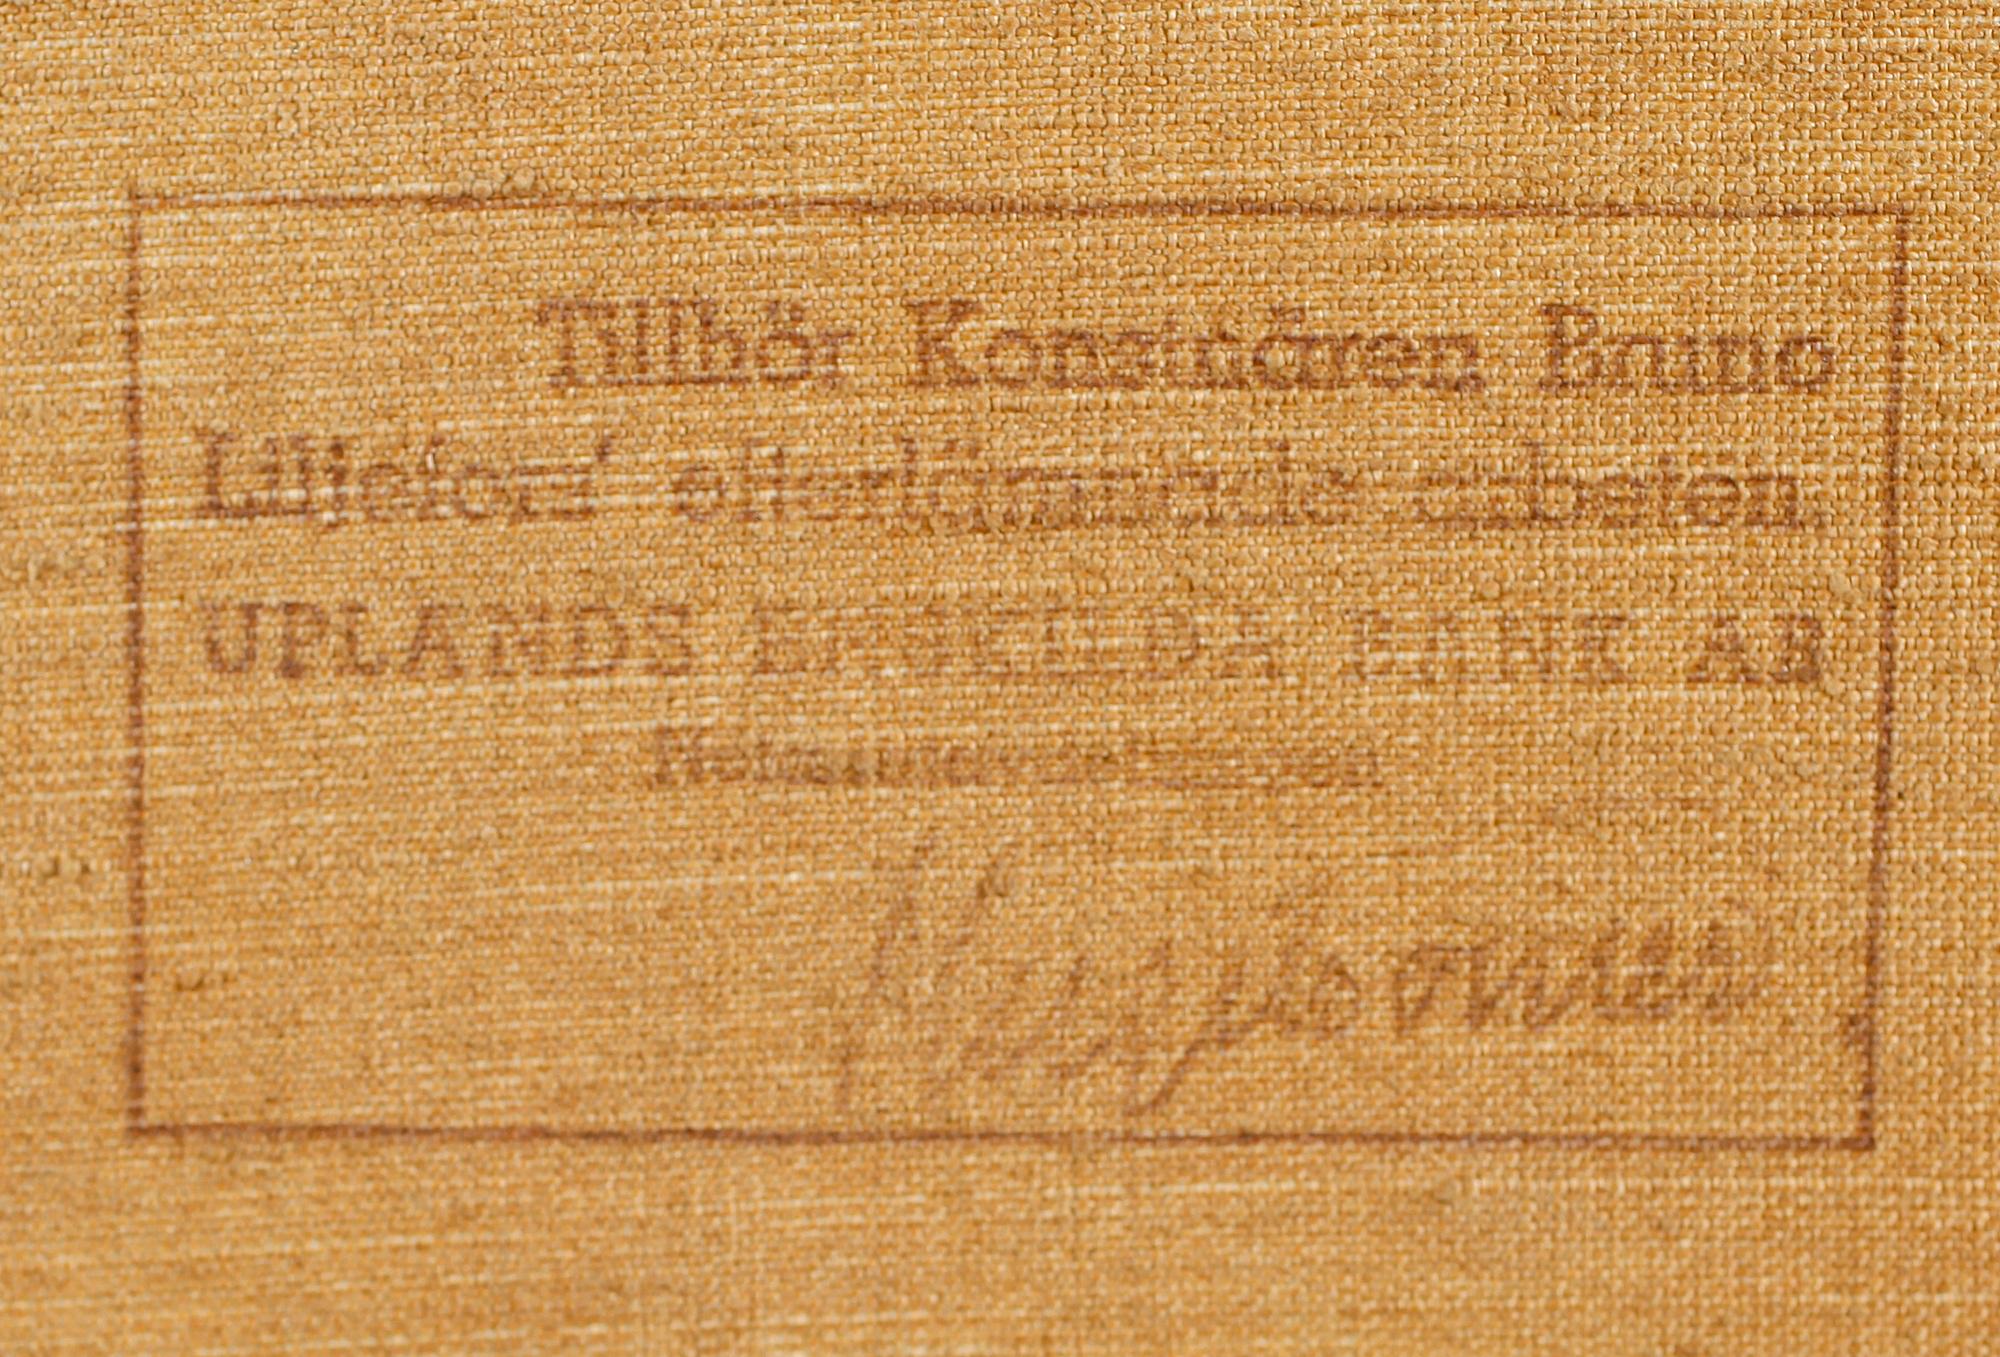 Tillhör Konstnären Bruno
Liljefors' efterlämnade arbeten.
UPLANDS ENSKILDA BANK AB
Notariatavdelningen